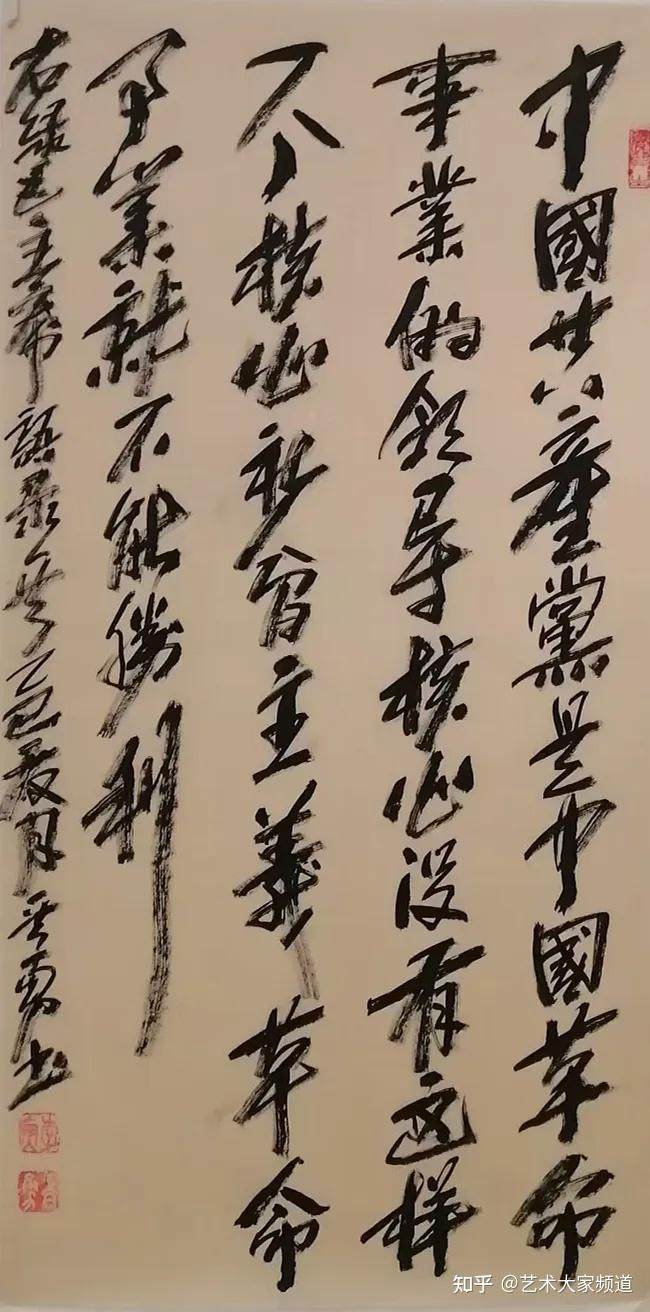 中國共產黨是中國革命
事業的领导核心没有这样
一个核心社會主義革命
事業就不能勝利
右録毛主席語录 乙巳春月 勇书
知乎 @艺术大家频道